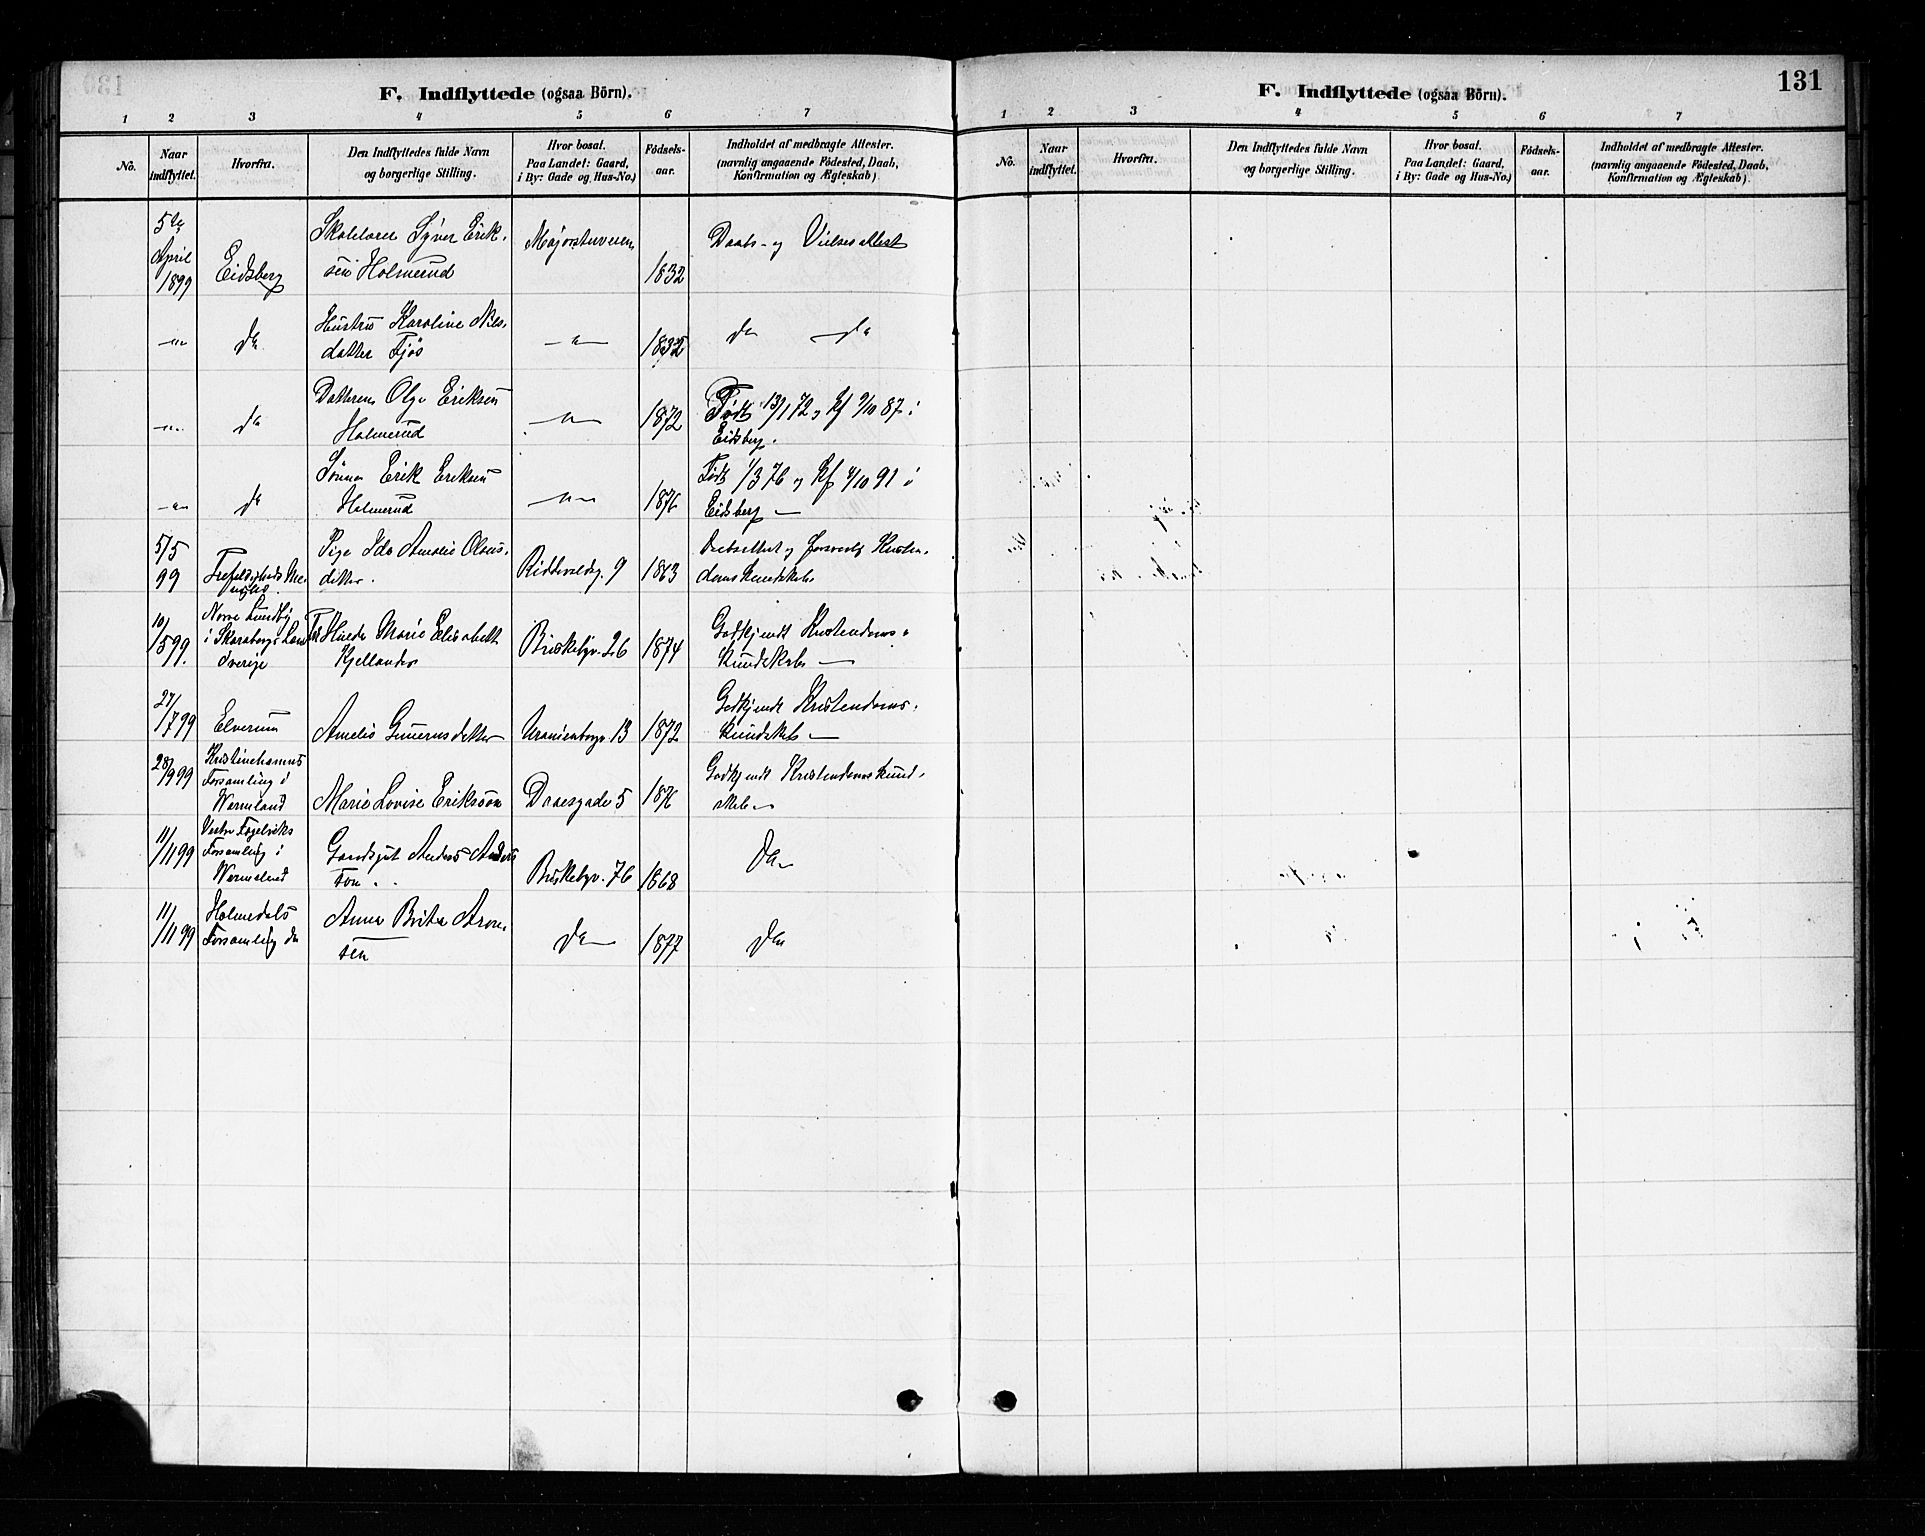 F. Indflyttede (ogsaa Börn).
1 2 3 4 5 6 7
No.
Naar indflyttet.
Hvorfra.
Den Indflyttedes fulde Navn
og borgerlige Stilling.
Hvor bosat.
Paa Landet: Gaard,
i By: Gade og Hus-No.)
Födsels-
aar.
Indholdet af medbragte Attester.
(navnlig angaaende Födested, Daab,
Konfirmation og Ægteskab)
5te
April
1899
Eidsberg
Syver Erik-
sen Holmerud
Majorstuveien
1832
Daabs- og Vielsesattest
-"-
do
Hustru Karoline Nils-
datter Fjøs
-"-
1832
do do
-"-
do
Datteren Olga Eriksen
Holmerud
-"-
1872
Født 13/1 72 og Kf 9/10 87 i
Eidsberg.
-"-
do
Sønnen Erik Eriksen
Holmerud
-"-
1876
Født 1/3 76 og Kf 4/10 91 i
Eidsberg
5/5
99
Pige Ida Amalie Olaus-
datter.
Riddervoldsg. 9
1863
Daabsattest og forsvarlig Kristen-
domskundskab
10/
5 99.
Norra Lundby
i Skaraborgs Län
Sverige
Hulda Maria Elisabeth
Kjellander
Briskebyv. 26
1874
Godkjendt Kristendoms-
kundskab
27/
7 99
Elverum
Amalie Gunernsdatter
Uranienborgv. 13
1872
Godkjendt Kristendoms-
kundskab
28/
9 99
Kristinehamns
Forsamling i
Wermland
Maria Lovise Eriksson
Daasgade 5
1876
Godkjendt Kristendomskund-
skab
11/
11 99
Vestra Fogelviks
Forsamling i
Wermland
Gaardsgut Anders Anders
son.
Briskebyv. 76
1868
Do
11/
11 99
Holmedals
Forsamling do
Anna Brita Aron-
sen
do
1877
do
131
F. Indflyttede (ogsaa Börn).
1 2 3 4 5 6 7
No.
Naar indflyttet.
Hvorfra.
Den Indflyttedes fulde Navn
og borgerlige Stilling.
Hvor bosat.
Paa Landet: Gaard,
i By: Gade og Hus-No.)
Födsels-
aar.
Indholdet af medbragte Attester.
(navnlig angaaende Födested, Daab,
Konfirmation og Ægteskab)